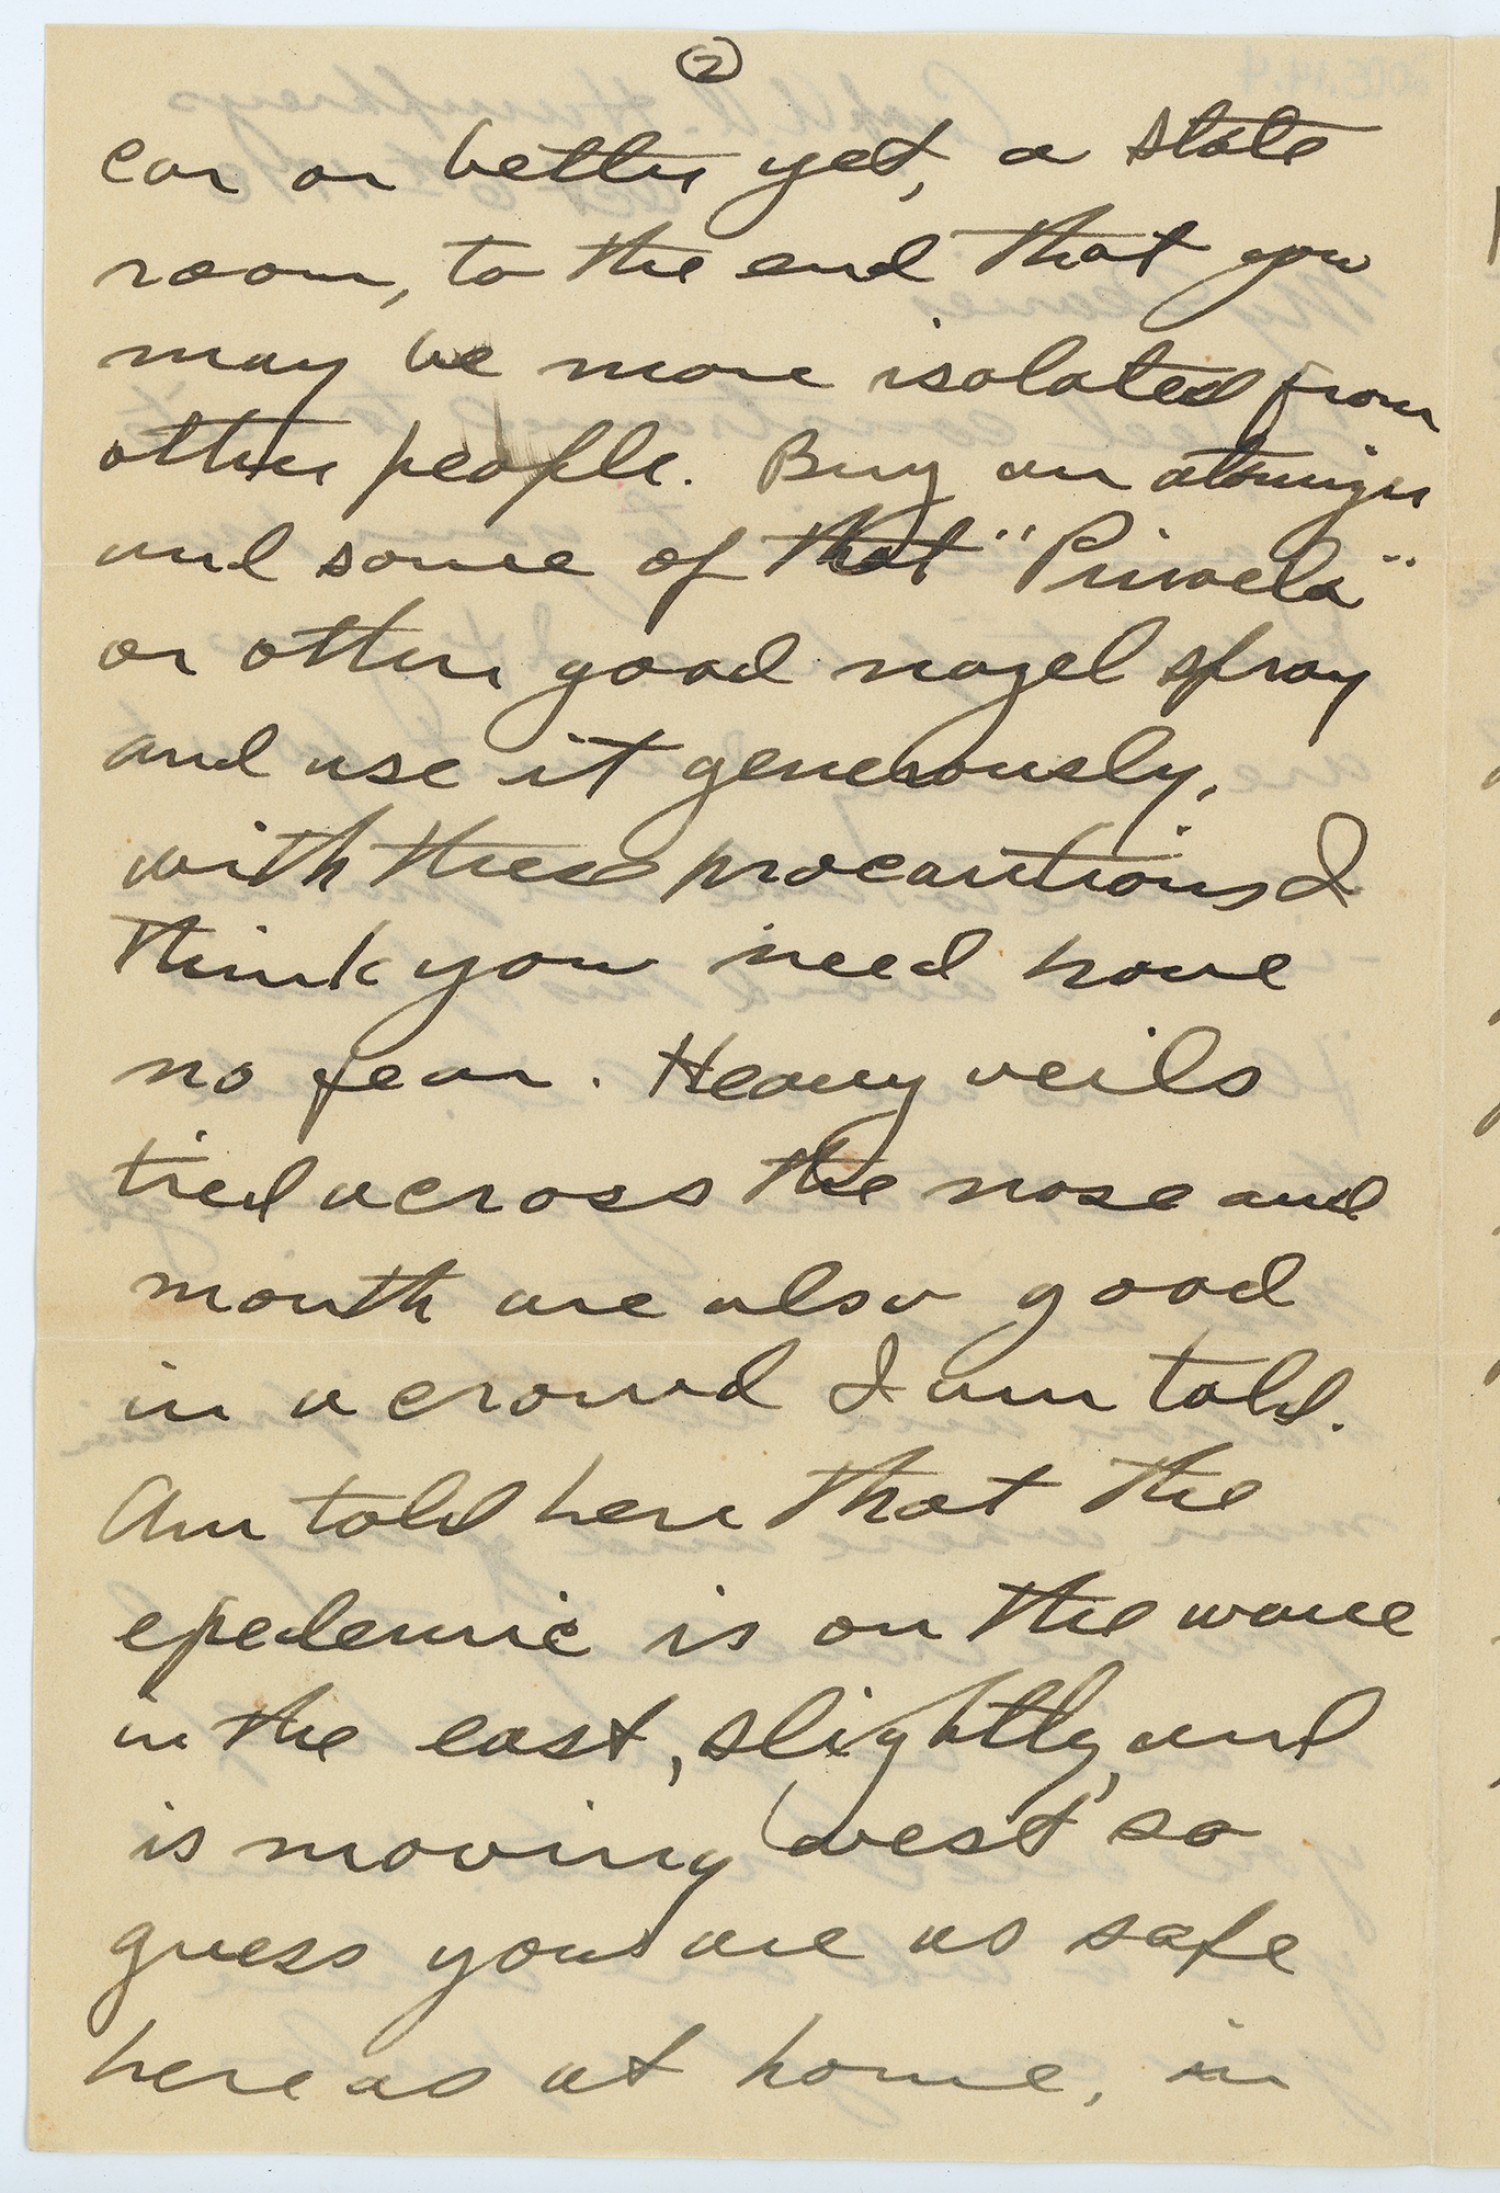 2
car or better yet, a state
room, to the end that you
may be more isolated from
other people. Buy an atomizer
and some of that "Pinoela"
or other good nazel spray
and use it generously.
with these precautions I
think you need have
no fear. Heavy veils
tied across the nose and
mouth are also good
in a crowd I am told.
Am told here that the
epedemic is on the wane
in the east, slightly, and
is moving west so
guess you are as safe
here as at home, in